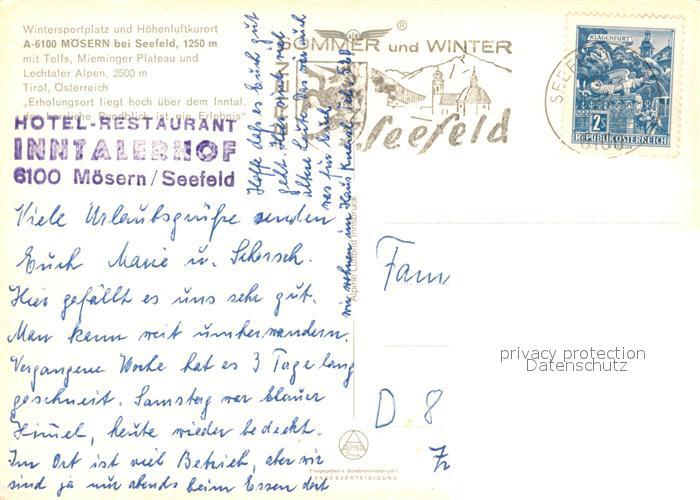 Wintersportplatz und Höhenluftkurort
A-6100 MÖSERN bei Seefeld, 1250 m
mit Telfs, Mieminger Plateau und
Lechtaler Alpen, 2500 m
Tirol, Österreich
„Erholungsort liegt hoch über dem Inntal,
Rundblick ist ein Erlebnis"
HOTEL-RESTAURANT
INNTALERHOF
6100 Mösern/Seefeld
Viele Urlaubsgrüße senden
Euch Marie u. Schorsch.
Hier gefällt es uns sehr gut.
Man kann weit umherwandern.
Vergangene Woche hat es 3 Tage lang
geschneit. Samstag war blauer
Himmel, heute wieder bedeckt.
Im Ort ist viel Betrieb, aber wir
sind ja nur abends beim Essen dort
Hoffe daß es Euch gut
geht. Hier sind viel
ältere Leute das wär auch
was für Euch
wir wohnen im Haus
®
SOMMER und WINTER
FERIEN
Seefeld
KLAGENFURT
2S
REPUBLIK ÖSTERREICH
SEEFE
6100
Alpine Luftbild Innsbruck
Fam
D 8
privacy protection
Datenschutz
ALPINE
Freigegeben v. Bundesministerium f.
LANDESVERTEIDIGUNG